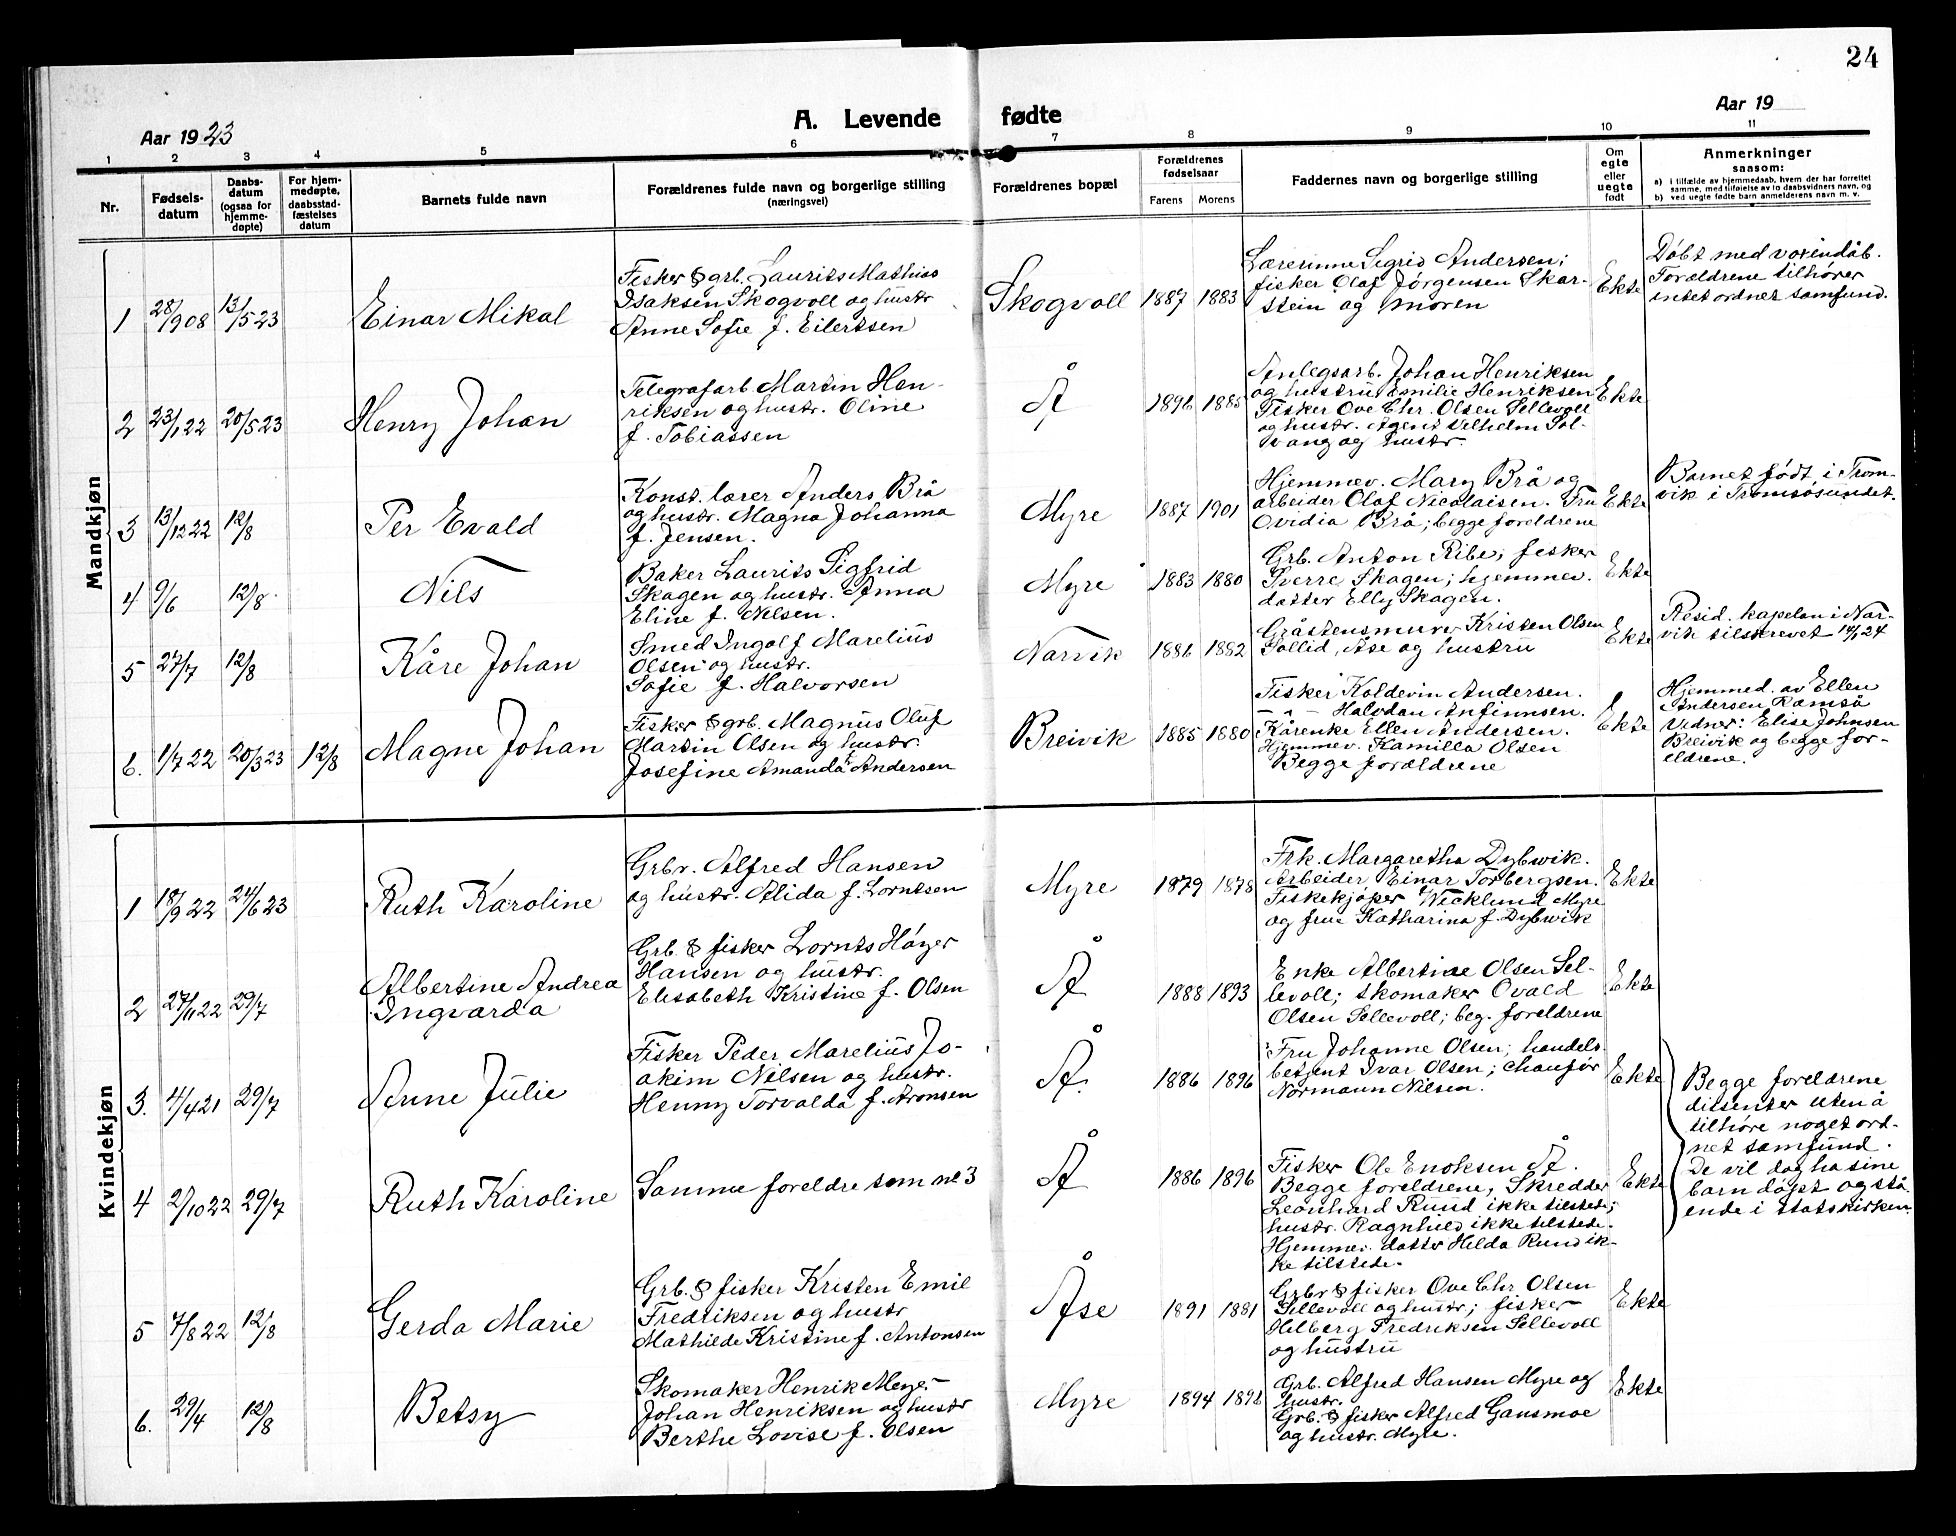 24
Aar 1923
A. Levende fødte
Aar 19
1 2 3 4 5 6 7 8 9 10 11
Nr.
Fødsels-
datum
Daabs-
datum
(ogsaa for
hjemme-
døpte)
For hjem-
medøpte,
daabsstad-
fæstelses
datum
Barnets fulde navn
Forældrenes fulde navn og borgerlige stilling
(næringsvei)
Forældrenes bopæl
Forældrenes
fødselsaar
Farens Morens
Faddernes navn og borgerlige stilling
Om
egte
eller
uegte
født
Anmerkninger
saasom:
a) i tilfælde av hjemmedaab, hvem der har forrettet
samme, med tilføielse av to daabsvidners navn, og
b) ved uegte fødte barn anmelderens navn m. v.
Mandkjøn
1
28/9 08
13/5 23
Einar Mikal
Fisker & grb. Laurits Mathias
Isaksen Skogvoll og hustr
Anne Sofie f. Eilertsen
Skogvoll
1887 1883
Lærerinne Sigrid Andersen;
fisker Olaf Jørgensen Skar-
stein og moren
Ekte
Døbt med voxindåb.
Forældrene tilhører
intet ordnet samfund.
2
23/1 22
20/5 23
Henry Johan
Telegrafarb. Martin Hen-
riksen og hustr. Oline
f. Tobiassen
Å
1896 1885
Anlegsarb. Johan Henriksen
og hustru Emilie Henriksen
Fisker Ove Chr. Olsen Sellevoll
og hustr. Agent Vilhelm Sol-
vang og hustr.
Ekte
3
13/12 22
12/8
Per Evald
Konst. lærer Anders Brå
og hustr. Magna Johanna
f. Jensen.
Myre
1887 1901
Hjemmev. Mary Brå og
arbeider Olaf Nicolaisen. Fru
Ovidia Brå; begge foreldrene
Ekte
Barnet født i Trom-
vik i Tromsøsundet.
4
9/6
12/8
Nils
Baker Laurits Sigfrid
Skagen og hustr. Anna
Eline f. Nilsen.
Myre
1883 1880
Grb. Anton Ribe; fisker
Sverre Skagen; hjemmev.
datter Elly Skagen.
Ekte
5
27/7
12/8
Kåre Johan
Smed Ingolf Marelius
Olsen og hustr.
Sofie f. Halvorsen
Narvik
1886 1882
Gråstensmurer Kristen Olsen
Sollid, Åse og hustru
Ekte
Resid. kapelan i Nar-
vik tilskrevet 14/1 24
6.
1/7 22
20/3 23
12/8
Magne Johan
Fisker & grb. Magnus Oluf
Martin Olsen og hustr.
Josefine Amanda Andersen
Breivik
1885 1880
Fisker Koldevin Andersen.
— " — Halvdan Anfinnsen.
Kårenke Ellen Andersen.
Hjemmev. Kamilla Olsen
Begge forældrene
Ekte
Hjemmed. av Ellen
Andersen Ramså
Vidner: Elise Johnsen
Breivik og begge for-
eldrene.
Kvindekjøn
1
18/9 22
24/6 23
Ruth Karoline
Grbr. Alfred Hansen
og hustr. Alida f. Lorntsen
Myre
1879 1878
Frk. Margaretha Dybwik.
Arbeider Einar Torbergsen.
Fiskekjøper Wicklund Myre
og frue Katharina f. Dybwik
Ekte
2
27/11 22
29/7
Albertine Andrea
Ingvarda
Grb. & fisker Lornts Høyer
Hansen og hustr.
Elisabeth Kristine f. Olsen
Å
1888 1893
Enke Albertine Olsen Sel-
levoll; skomaker Ovald
Olsen Sellevoll; beg. foreldrene
Ekte
3.
4/4 21
29/7
Anne Julie
Fisker Peder Marelius Jo-
akim Nilsen og hustr.
Henny Torvalda f. Aronsen
Å
1886 1896
Fru Johanne Olsen; handels-
betjent Ivar Olsen; chauför
Normann Nilsen.
Ekte
Begge foreldrene
dissenter uten å
tilhøre noget ord-
net samfund.
De vil dog ha sine
barn døpt og stå-
ende i statskirken.
4
2/10 22
29/7
Ruth Karoline
Samme foreldre som nr 3
Å
1886 1896
Fisker Ole Enoksen Å.
Begge foreldrene, Skredder
Leonhard Ruud ikke tilstede;
hustr. Ragnhild ikke tilstede.
Hjemmev. datter Hilda Ruud ik-
ke tilstede.
Ekte
5
7/8 22
12/8
Gerda Marie
Grb. & fisker Kristen Emil
Fredriksen og hustr
Mathilde Kristine f. Antonsen
Åse
1891 1881
Grbr & fisker Ove Chr Olsen
Sellevoll og hustr; fisker
Hilberg Fredriksen Sellevoll
og hustru
Ekte
6.
29/4
12/8
Betsy
Skomaker Henrik Meyer
Johan Henriksen og hustr
Berthe Lovise f. Olsen
Myre
1894 1898
Grb. Alfred Hansen Myre og
hustr.
Grb. & fisker Alfred Gansmoe
og hustr. Myre.
Ekte